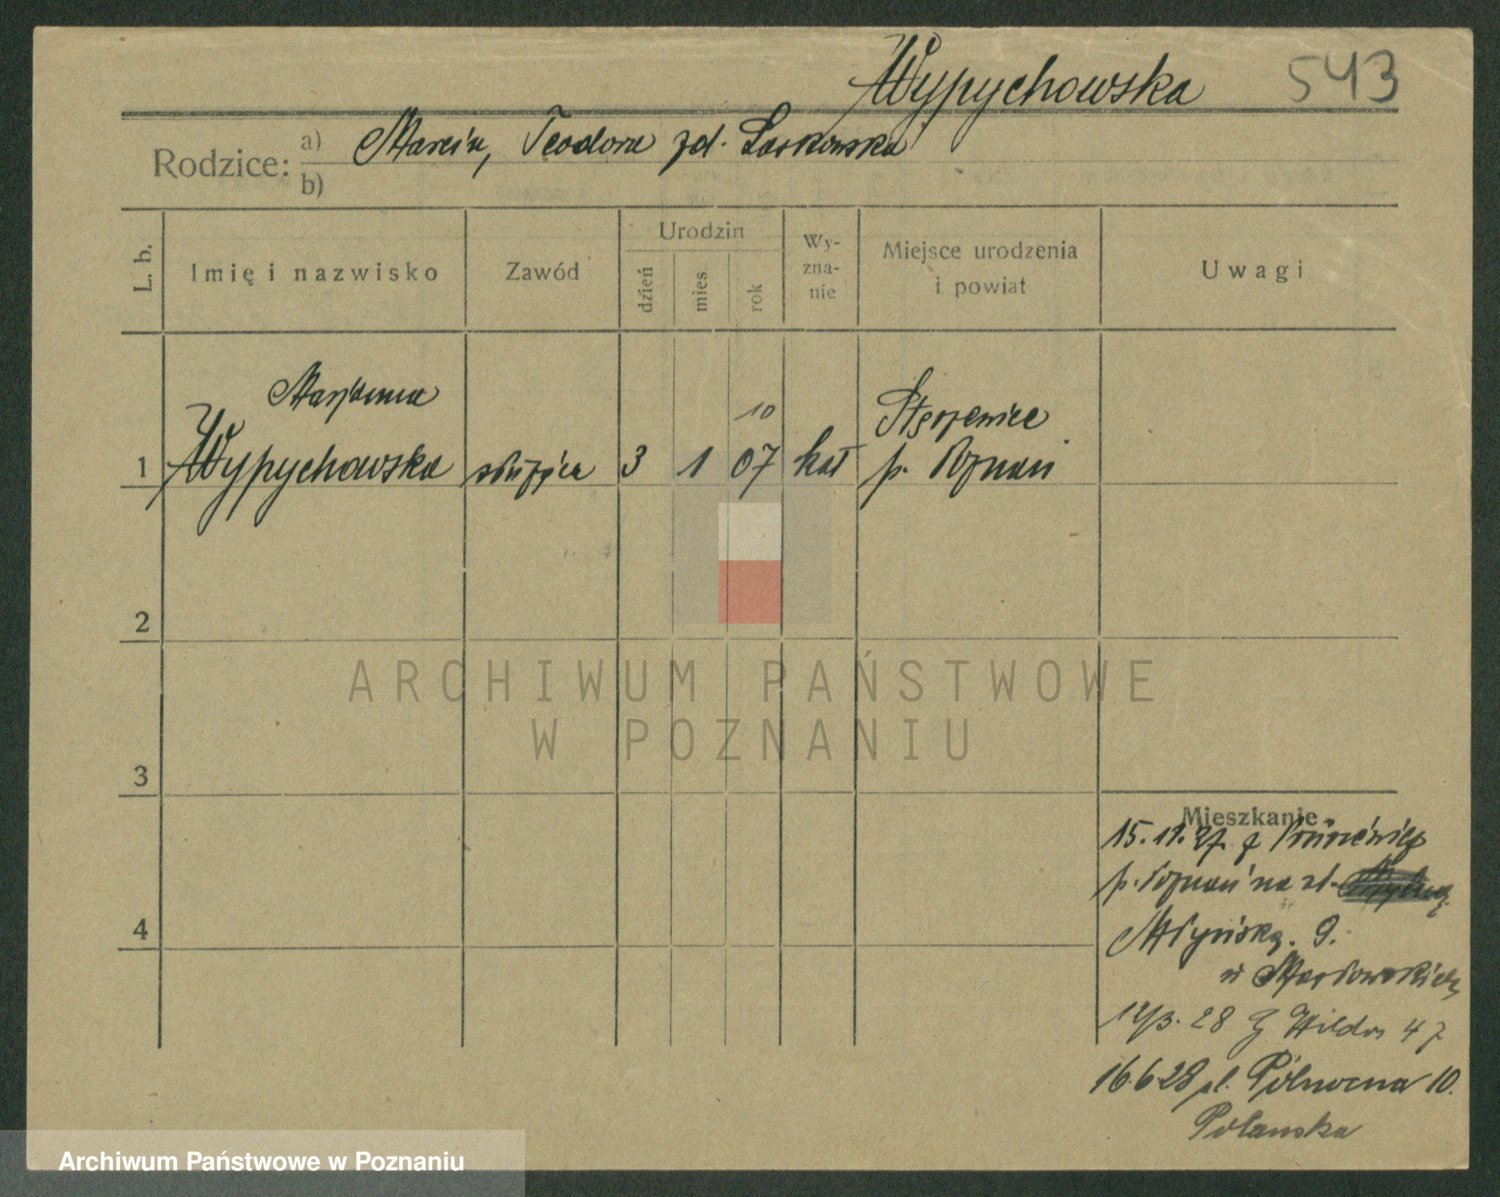 Wypychowska 543
Rodzice: a) Marcin, Teodora zd. Laskowska
b)
L. b. Imię i nazwisko Zawód Urodzin dzień mies. rok Wyznanie Miejsce urodzenia i powiat Uwagi
Marjanna 10
1 Wypychowska służąca 3 1 07 kat p. Poznań
2
3
4
Mieszkanie
15.11.27. z
p. Poznań na ul.
Młyńską. 9.
u
28 Wilda 47
16.6.28 ul. Północna 10.
Polanska
ARCHIWUM PAŃSTWOWE
W POZNANIU
Archiwum Państwowe w Poznaniu